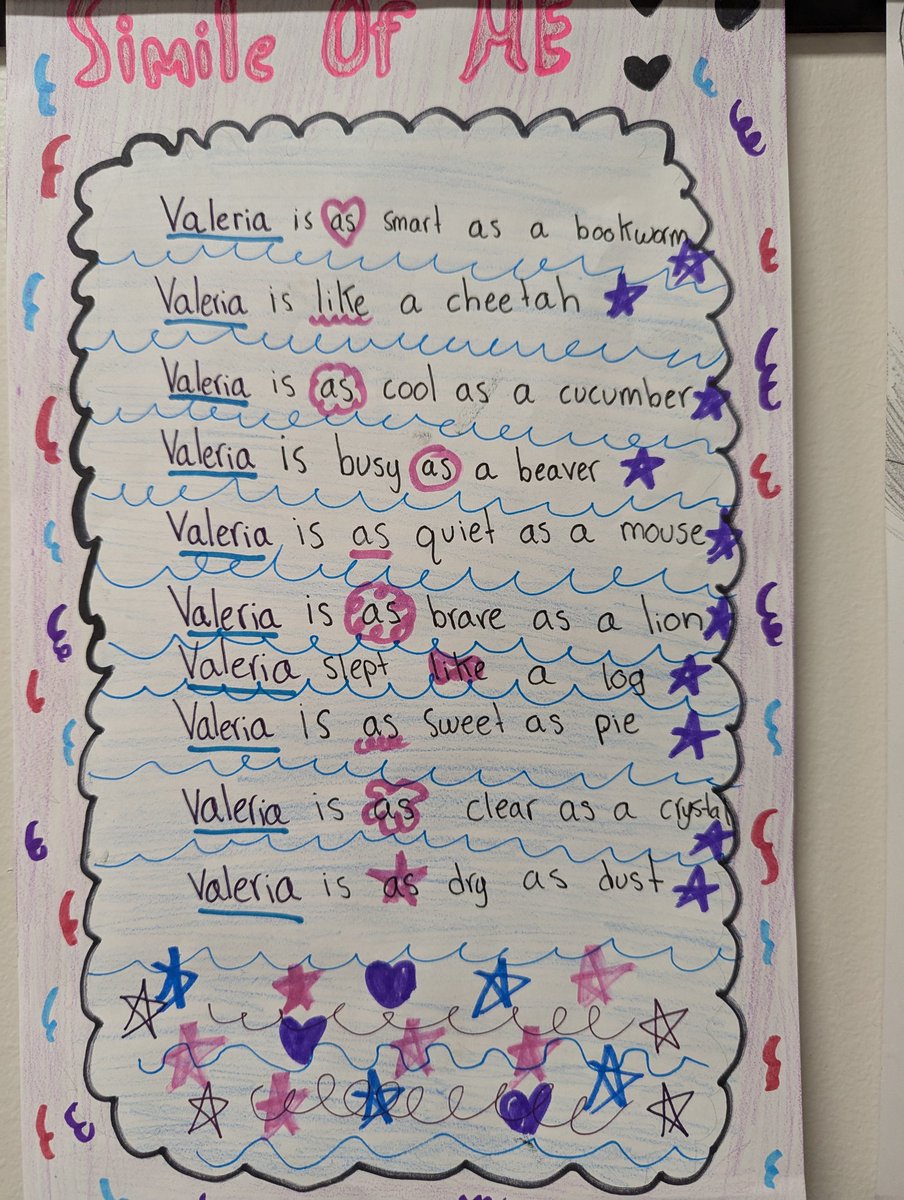 Simile Of ME
Valeria is as smart as a bookworm
Valeria is like a cheetah
Valeria is as cool as a cucumber
Valeria is busy as a beaver
Valeria is as quiet as a mouse
Valeria is as brave as a lion
Valeria slept like a log
Valeria is as sweet as pie
Valeria is as clear as a crystal
Valeria is as dry as dust